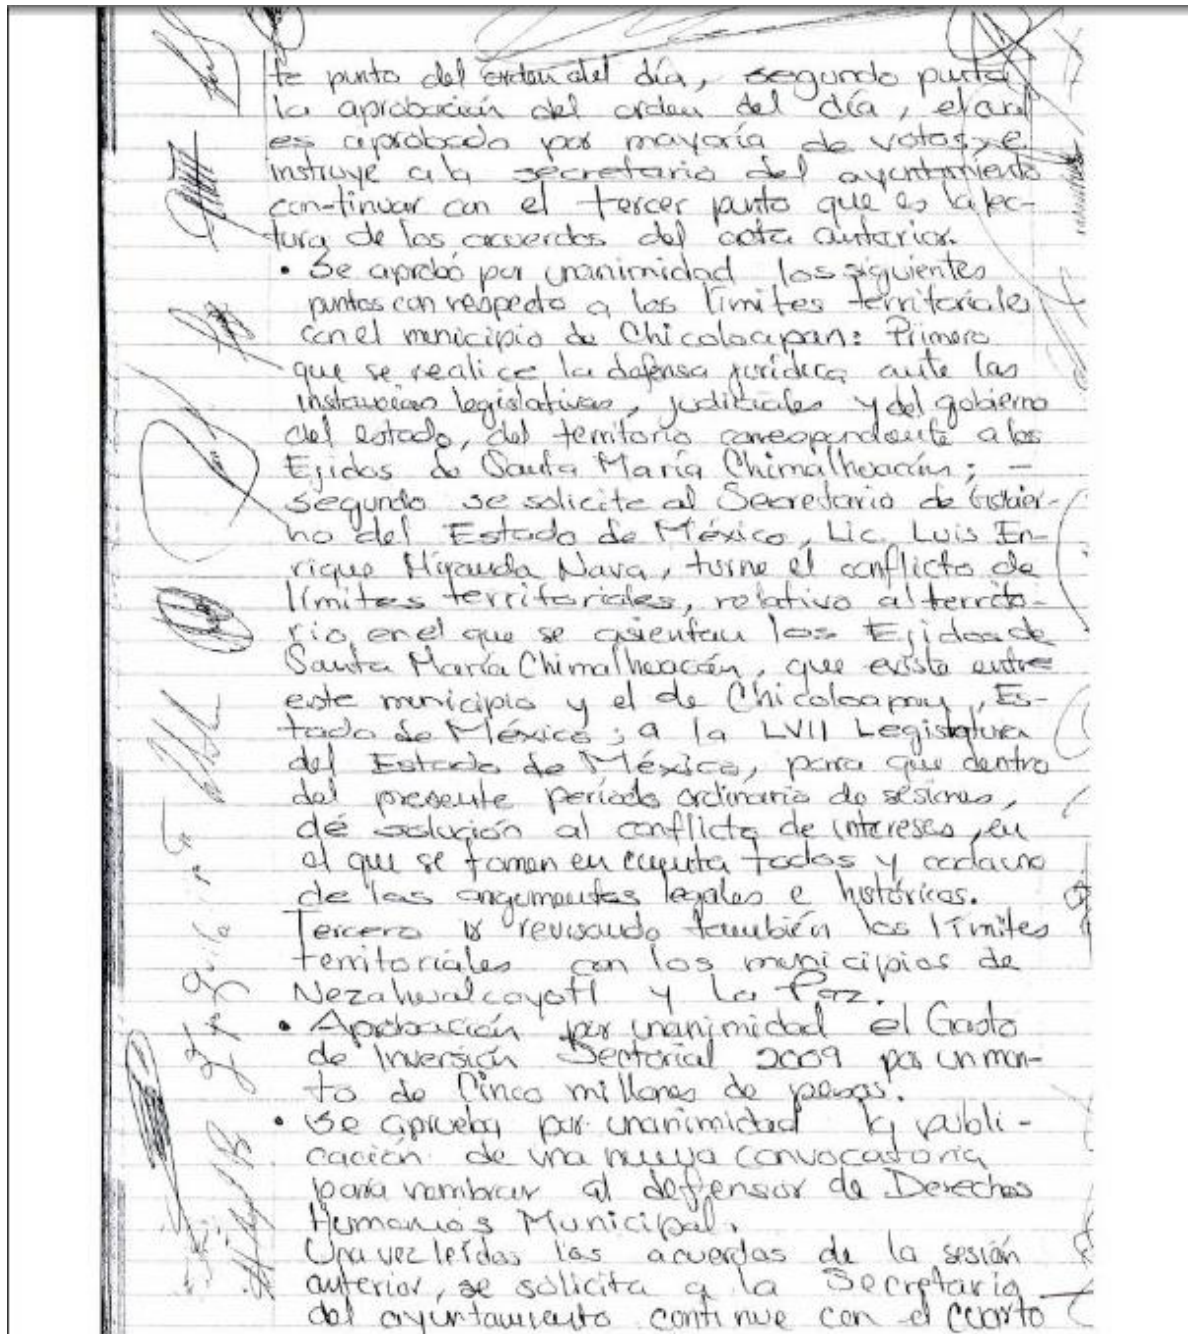 te punto del orden del día, segundo punto
la aprobación del orden del día, el cual
es aprobado por mayoría de votos, se
instruye a la secretario del ayuntamiento
con-tinuar con el tercer punto que es la lec-
tura de los acuerdos del acta anterior.
• Se aprobó por unanimidad los siguientes
puntos con respecto a los límites territoriales
con el municipio de Chicoloapan: Primero
que se realice la defensa jurídica ante las
instancias legislativas, judiciales y del gobierno
del estado, del territorio correspondiente a los
Ejidos de Santa María Chimalhuacán; -
segundo se solicite al Secretario de Gobier-
no del Estado de México, Lic. Luis En-
rique Miranda Nava, turne el conflicto de
límites territoriales, relativo al territo-
rio, en el que se asientan los Ejidos de
Santa María Chimalhuacán, que existe entre
este municipio y el de Chicoloapan, Es-
tado de México; a la LVII Legislatura
del Estado de México, para que dentro
del presente período ordinario de sesiones,
dé solución al conflicto de intereses, en
el que se tomen en cuenta todos y cada uno
de los argumentos legales e históricos.
Tercero ir revisando también los límites
territoriales con los municipios de
Nezahualcoyotl y La Paz.
• Aprobación por unanimidad el Gasto
de Inversión Sectorial 2009 por un mon-
to de Cinco millones de pesos.
• Se aprueba por unanimidad la publi-
cación de una nueva convocatoria
para nombrar al deffensor de Derechos
Humanos Municipal.
Una vez leídos los acuerdos de la sesión
anterior, se solicita a la Secretaria
del ayuntamiento continue con el cuarto